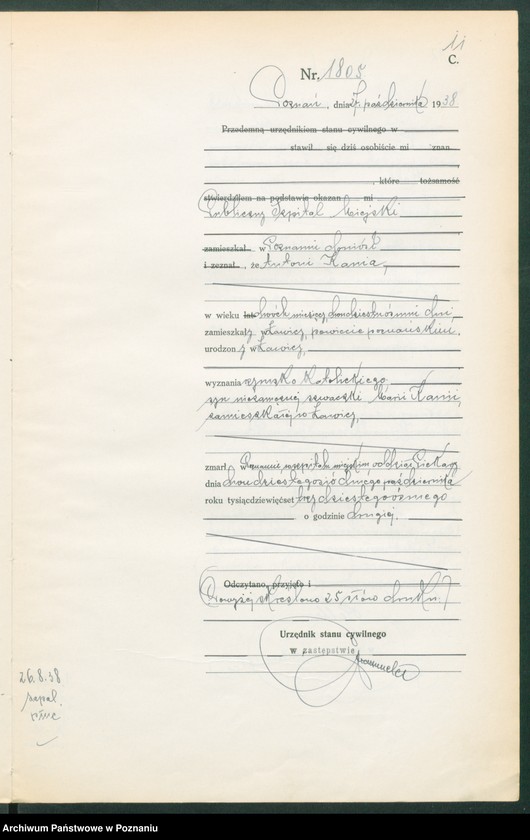 11
C.
Nr. 1805
Poznań, dnia 27. października 1938
Przedemną urzędnikiem stanu cywilnego w
stawił się dziś osobiście mi znan
, które tożsamość
stwierdziłem na podstawie okazan mi
Publiczny Szpital Miejski
zamieszkał w Poznaniu doniósł
i zeznał, że Antoni Kania,
w wieku lat dwóch miesięcy, dwudziestuośmiu dni,
zamieszkały w Ławicy, powiecie poznańskim,
urodzony w Ławicy,
wyznania rzymsko katolickiego
syn niezamężnej szwaczki Marii Kani,
zamieszkałej w Ławicy,
zmarł w Poznaniu w szpitalu miejskim oddział
dnia dwudziestego siódmego października
roku tysiącdziewięćset trzydziestegoósmego
o godzinie drugiej.
Odczytano, przyjęto i
(Powyżej skreślono 25 słów druku.)
Urzędnik stanu cywilnego
w zastępstwie
26.8.38
zapal.
płuc
Archiwum Państwowe w Poznaniu